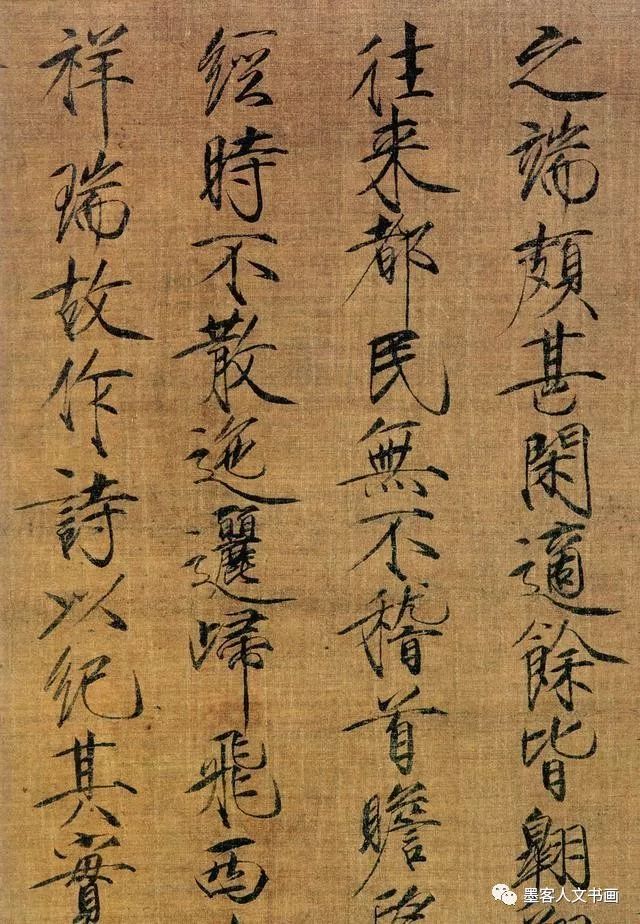 之端頗甚閑適餘皆翱
往来都民無不稽首瞻
經時不散迤邐歸飛西
祥瑞故作詩以紀其實
墨客人文书画